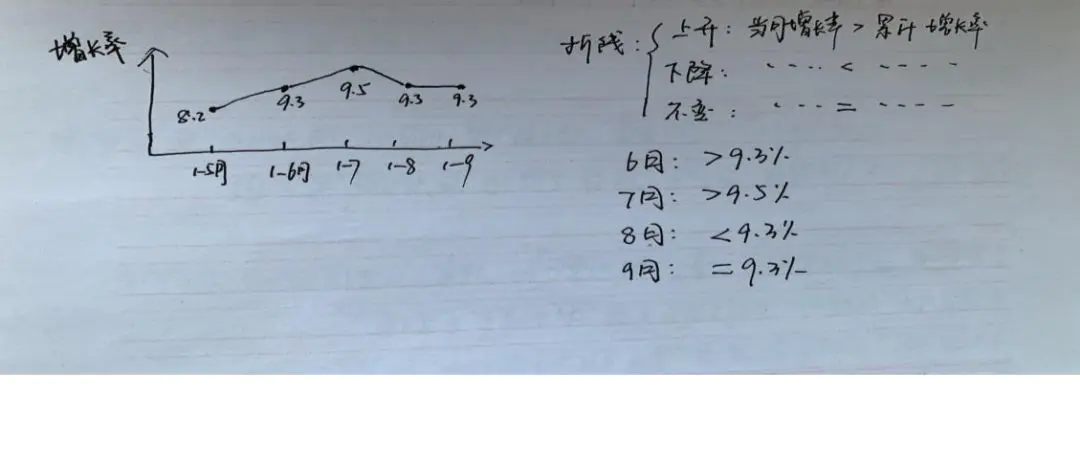 增长率
8.2
9.3
9.5
9.3
9.3
1-5月 1-6月 1-7 1-8 1-9
折线: { 上升: 当月增长率 > 累计增长率
下降: ···· < ····
不变: ···· = ····
6月: >9.3%
7月: >9.5%
8月: <9.3%
9月: =9.3%